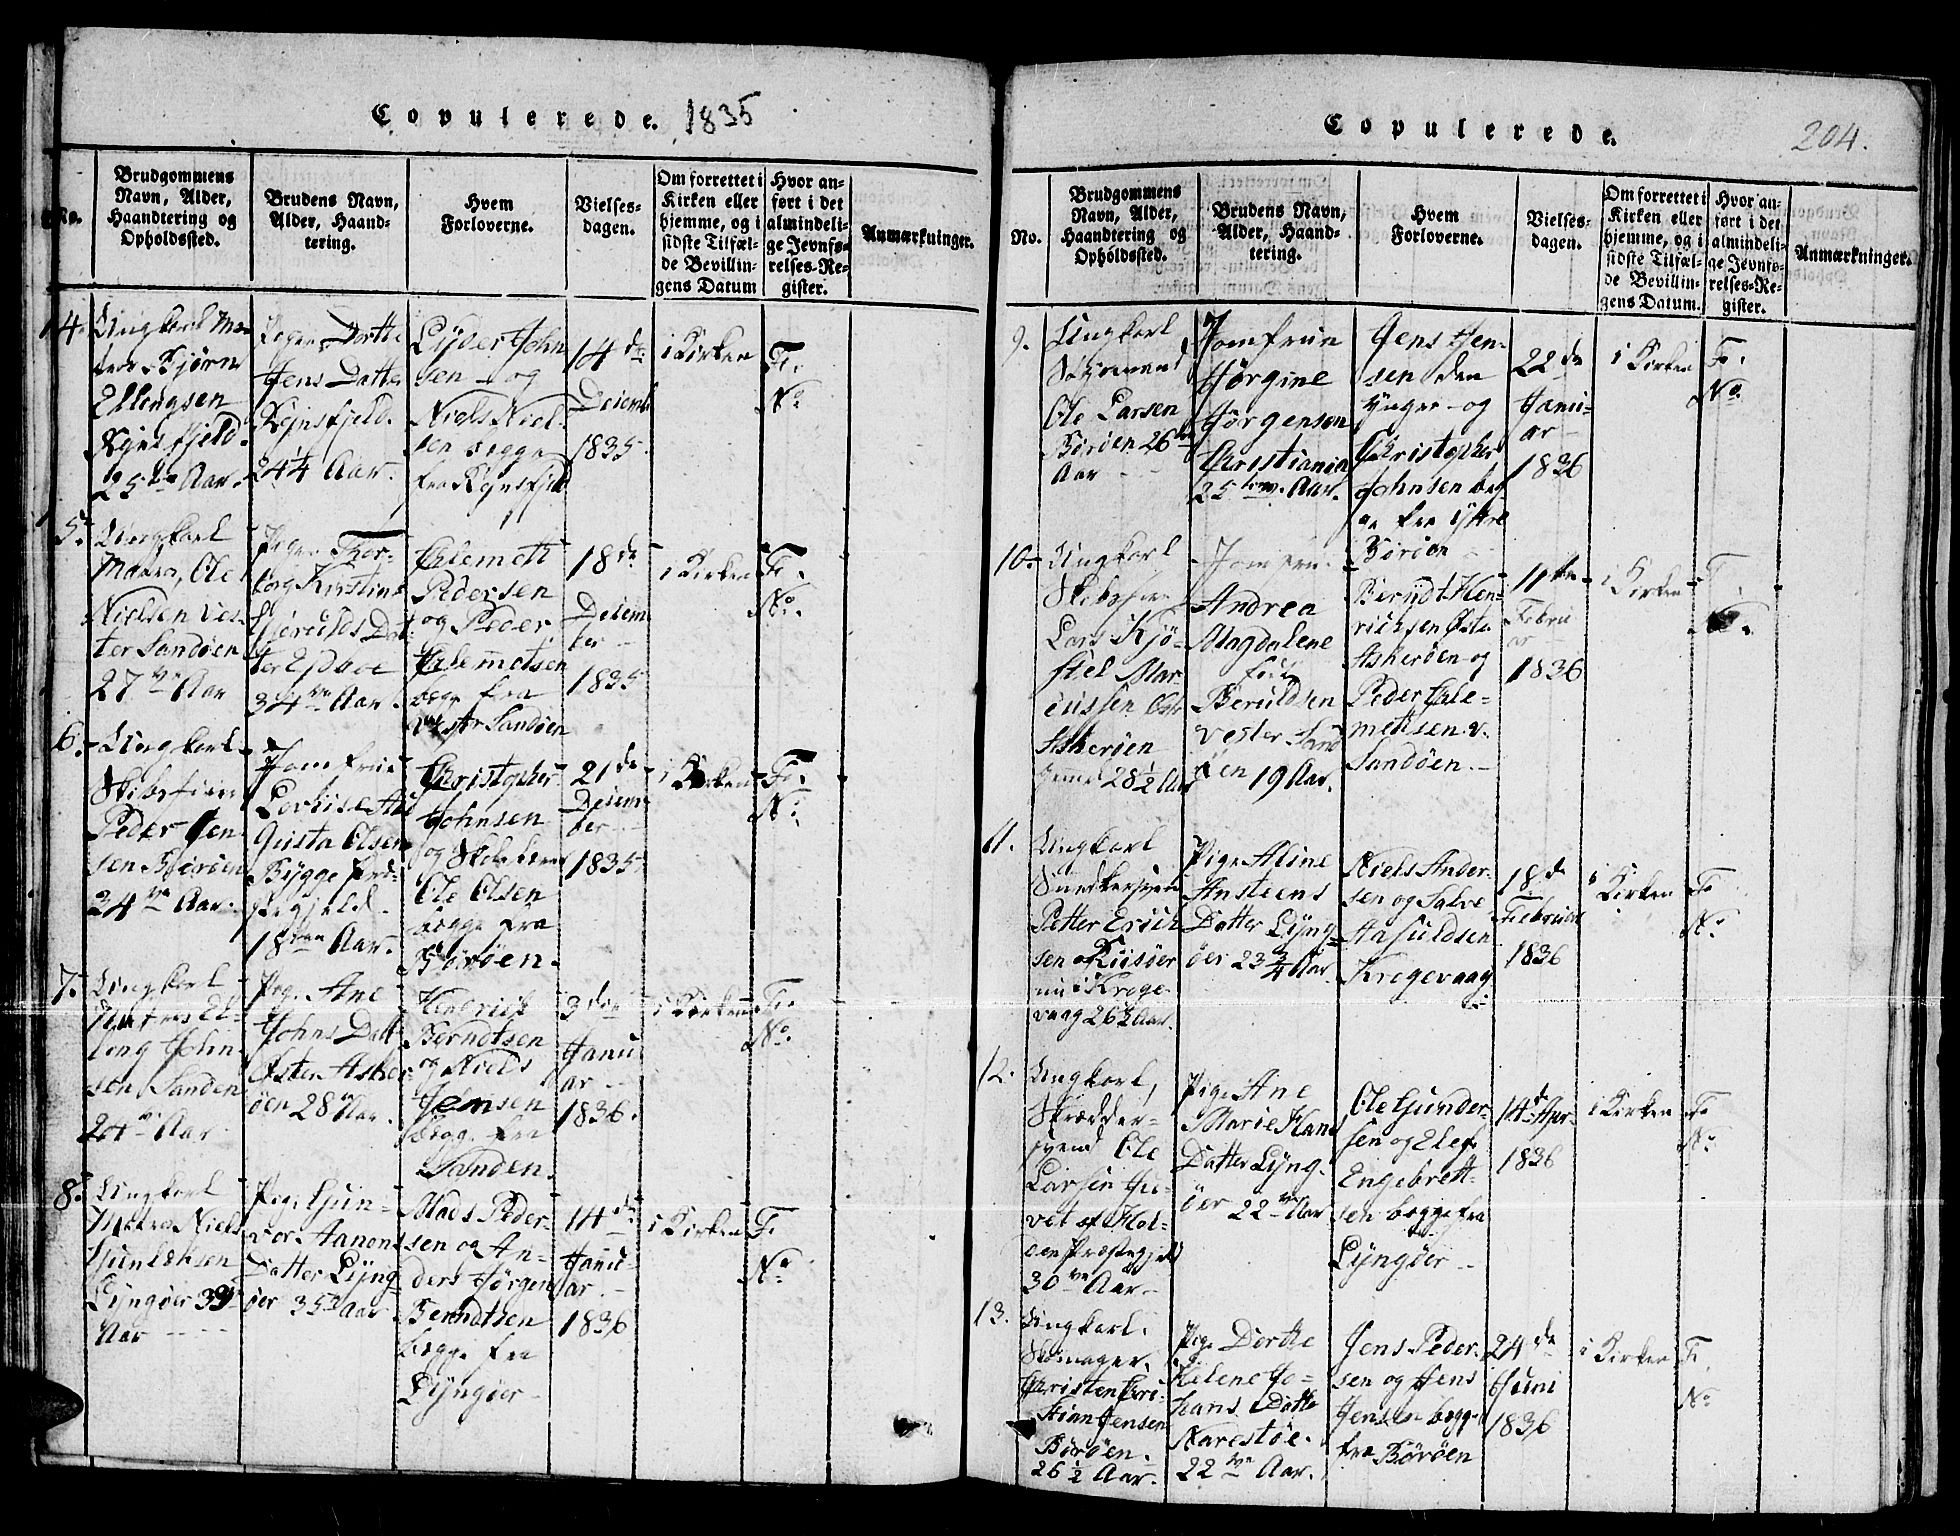 Copulerede. 1835
No.
Brudgommens
Navn, Alder,
Haandtering og
Opholdssted.
Brudens Navn,
Alder, Haand-
tering.
Hvem
Forloverne.
Vielses-
dagen.
Om forrettet i
Kirken eller
hjemme, og i
sidste Tilfæl-
de Bevillin-
gens Datum
Hvor an-
ført i det
almindeli-
ge Jevnfø-
relses-Re-
gister.
Anmærkninger.
4.
Ungkarl Ma-
Bjørn
Ellingsen
25 Aar.
Pigen Dorthe
Jens Datter
24¼ Aar.
Lyder John
sen og
Niels Niel-
sen begge
fra
14de
Decemb
1835.
i Kirken
Fo.
No
5.
Ungkarl
Matros, Ole
Nielsen Ves-
ter Sandøen
27 Aar
Pigen Thor-
borg Kristine
Dat-
ter
34 Aar.
Clemett
Pedersen
og Peder
Clemetsen
begge fra
Vester Sandøen
18de
Decem
ber
1835
i Kirken
Fo.
No.
6.
Ungkarl
Peder Jen-
sen Børøen
24 Aar.
Jomfrue
Lovise Au
Gusta Olsen
Bygge
18 Aar.
Christopher
Johnsen
og
Ole Olsen
begge fra
Børøen.
21de
Decem
ber
1835
i Kirken
Fo.
No.
7.
Ungkarl
Matros El-
ling John-
sen Sanden
Aar
Pige Ane
Johns Datt
Øster Asker
øen 28 Aar.
Hendrich
Berndtsen
og Niels
Jensen
begge fra
Sanden.
3die
Janu
ar
1836.
i Kirken
Fo.
No.
8.
Ungkarl
Matros Niels
Lyngøer
Aar
Pige Gun-
vor Aanons
Datter Lyng
øer 35 Aar
Mads Peder-
sen og An-
ders Jørgen
Berndtsen
begge fra
Lyngøer
14de
Janu-
ar.
1836
i Kirken
F.
No
Copulerede. 204.
No.
Brudgommens
Navn, Alder,
Haandtering og
Opholdssted.
Brudens Navn,
Alder, Haand-
tering.
Hvem
Forloverne.
Vielses-
dagen.
Om forrettet i
Kirken eller
hjemme, og i
sidste Tilfæl-
de Bevillin-
gens Datum.
Hvor an-
ført i det
almindeli-
ge Jevnfø-
relses-Re-
gister.
Anmærkninger.
9.
Ungkarl
Søemand
Ole Larsen
Børøen 26
Aar
Jomfruen
Jørgine
Jørgensen
Christiania
25 Aar.
Jens Jen-
sen den
Ynger og
Christopher
Johnsen beg
ge fra Ydtre
Børøen
22de
Janu-
ar
1836
i Kirken
Fo.
No.
10.
Ungkarl
Lars Kjø-
stel Mar-
cussen
Askerøen
28½ Aar
Jomfrue
Andrea
Magdalene
Beruldsen
Vester Sand
øen 19 Aar.
Berndt Hen-
richsen Øster
Askerøen og
Peder Cle-
metsen v.
Sandøen.
11te
Febru
ar
1836
i Kirken
No.
11.
Ungkarl
Petter Erich
sen Riisøer
nu i Kroge
vaag 26½ Aar.
Pige Aline
Ansteens
Datter Lyng
øer 23¾ Aar
Niels Ander-
sen og Salve
Krogevaag
18de
Februar
1836
i Kirken
Fo
No
12.
Ungkarl,
Skrædder-
svend Ole
Larsen
vet af Hol-
den Præstegjeld
30 Aar.
Pige Ane
Marie Hans
Datter Lyng-
øer 22 Aar
Ole Gunder-
sen og Elef
Engebrett-
sen begge fra
Lyngøer
14de Apr-
1836
i Kirken
Fo
No
13.
Ungkarl.
Skomager.
Christen Chri-
stian Jensen
Børøen.
26½ Aar.
Pige Dorthe
Helene Jo-
hans Datter
Narestøe.
22 Aar.
Jens Peder-
sen og Jens
Jensen begge
fra Børøen
24de
Juni
1836
i Kirken
F.
No